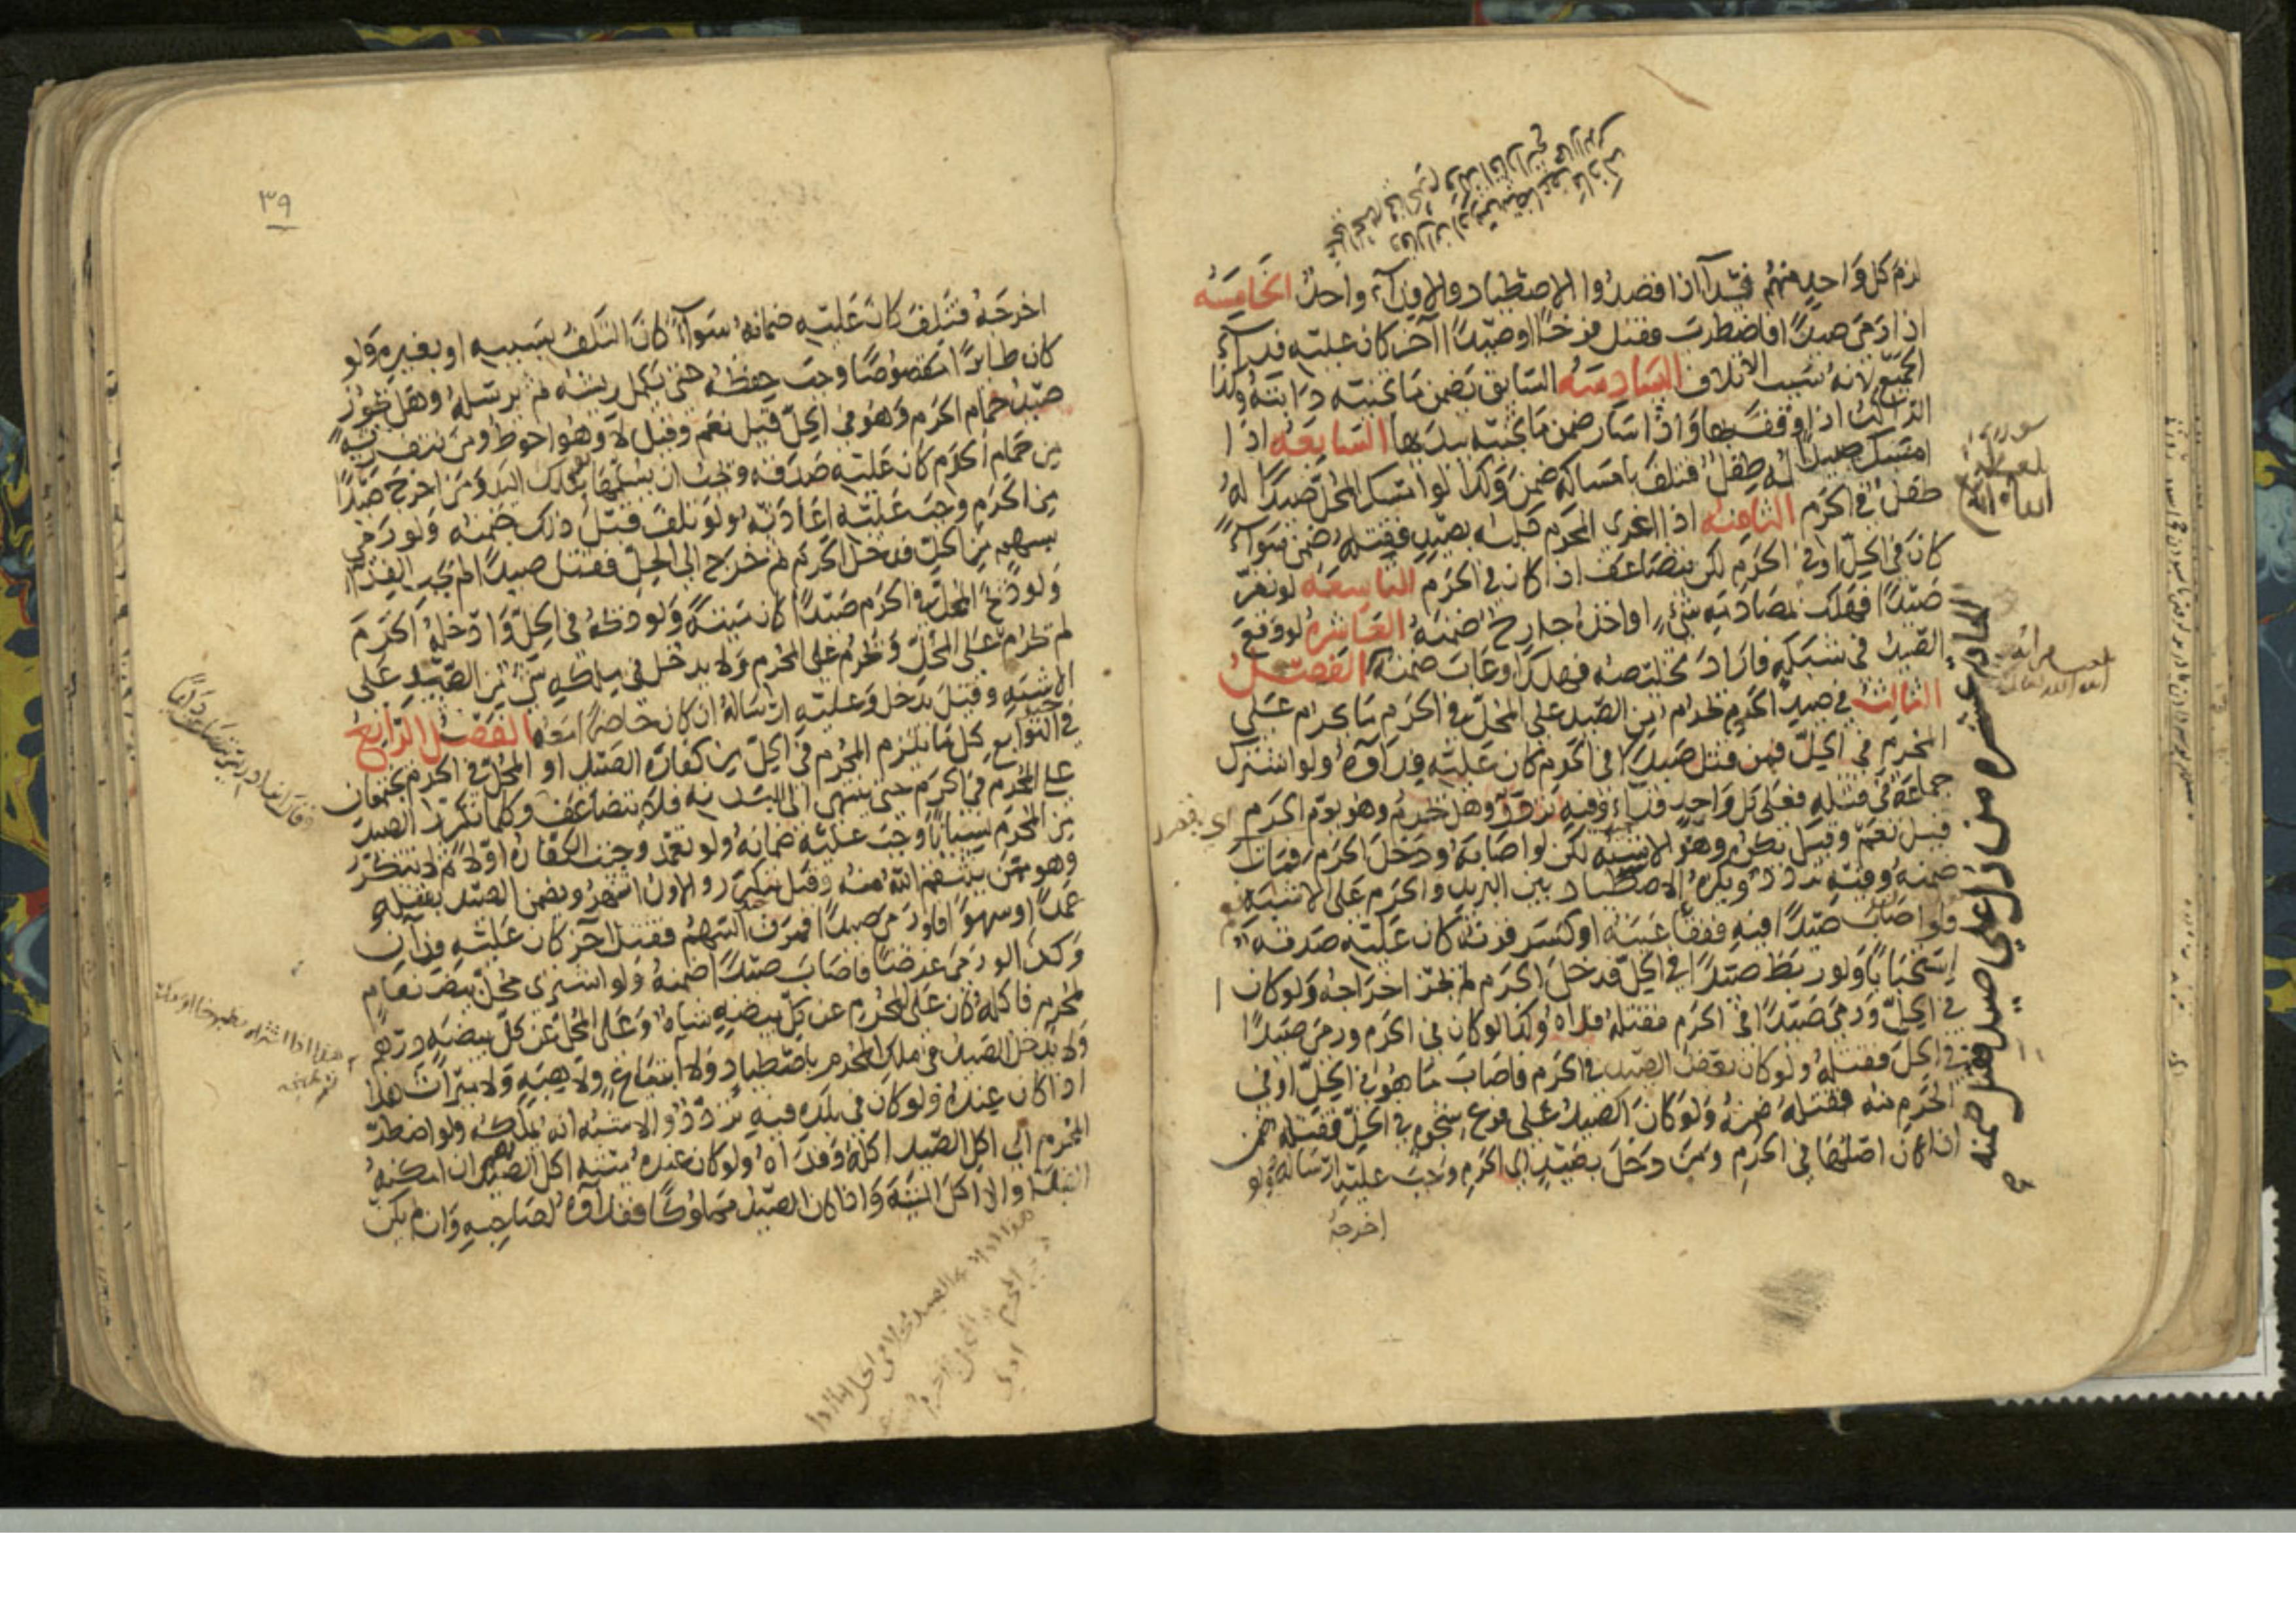 لزم كل واحد منهم فدآ اذا قصدوا الاصطياد والا ففدآء واحد الخامسه
اذا رمى صيدًا فاضطرب فقتل فرخًا او صيدًا آخر كان عليه فدآء
الجميع لانه سبب الاتلاف السادسه السابق يضمن ما تجنيه دابته وكذا
الراكب اذا وقف بها واذا سار ضمن ما تجنيه بيديها السابعه اذا
امسك صيدًا له طفل فتلف بامساكه ضمن وكذا لو امسك المحل صيدًا له
طفل في الحرم الثامنه اذا اغرى المحرم كلبه بصيد فقتله ضمن سوآء
كان في الحل او في الحرم لكن يتضاعف اذا كان في الحرم التاسعه لو نفر
صيدًا فهلك بمصادمة شيء او اخذه جارح ضمنه العاشره لو وقع
الصيد في شبكه فاراد تخليصه فهلك او عاب ضمنه الفصل
الثالث في صيد الحرم يحرم من الصيد على المحل في الحرم ما يحرم على
المحرم في الحل فمن قتل صيدًا في الحرم كان عليه فدآؤه ولو اشترك
جماعة في قتله فعلى كل واحد فدآء وفيه تردد وهل يحرم وهو يؤم الحرم
قيل نعم وقيل يكره وهو الاشبه لكن لو اصابه ودخل الحرم فمات
ضمنه وفيه تردد ويكره الاصطياد بين البريد والحرم على الاشبه
فلو اصاب صيدًا فيه ففقأ عينه او كسر قرنه كان عليه صدقه
استحبابًا ولو ربط صيدًا في الحل فدخل الحرم لم يجز اخراجه ولو كان
في الحل ورمى صيدًا في الحرم فقتله فداه وكذا لو كان في الحرم ورمى صيدًا
في الحل فقتله ولو كان بعض الصيد في الحرم فاصاب ما هو في الحل او في
الحرم منه فقتله ضمنه ولو كان الصيد على فرع شجره في الحل فقتله ضمن
اذا كان اصلها في الحرم ومن دخل بصيد الى الحرم وجب عليه ارساله ولو
اخرجه
الحاديه عشره من دل على صيد فقتل ضمنه
٣٩
اخرجه فتلف كان عليه ضمانه سوآء كان التلف بسببه او بغيره ولو
كان طايرًا مقصوصًا وجب حفظه حتى يكمل ريشه ثم يرسله وهل يجوز
صيد حمام الحرم وهو في الحل قيل نعم وقيل لا وهو احوط ومن نتف ريشة
من حمام الحرم كان عليه صدقه ويجب ان يسلمها بتلك اليد ومن اخرج صيدًا
من الحرم وجب عليه اعادته ولو تلف قبل ذلك ضمنه ولو رمى
بسهم من الحل فدخل الحرم ثم خرج الى الحل فقتل صيدًا لم يجب الفدآ
ولو ذبح المحل في الحرم صيدًا كان ميتة ولو ذبحه في الحل وادخله الحرم
لم يحرم على المحل ويحرم على المحرم ولا يدخل في ملكه شيء من الصيد على
الاشبه وقيل يدخل وعليه ارساله ان كان حاضرًا معه الفصل الرابع
في التوابع كل ما يلزم المحرم في الحل من كفارة الصيد او المحل في الحرم يجتمعان
على المحرم في الحرم حتى ينتهي الى البدنه فلا يتضاعف وكلما تكرر الصيد
من المحرم نسيانًا وجب عليه ضمانه ولو تعمد وجبت الكفاره اولا ثم لا تتكرر
وهو ممن ينتقم الله منه وقيل تتكرر والاول اشهر ويضمن الصيد بقتله
عمدًا وسهوًا فلو رمى صيدًا فمرق السهم فقتل آخر كان عليه فدآان
وكذا لو رمى غرضًا فاصاب صيدًا ضمنه ولو اشترى محل بيض نعام
لمحرم فاكله كان على المحرم عن كل بيضه شاه وعلى المحل عن كل بيضه درهم
ولا يدخل الصيد في ملك المحرم باصطياد ولا ابتياع ولا هبه ولا ميراث هذا
اذا كان عنده ولو كان في بلده فيه تردد والاشبه انه يملك ولو اضطر
المحرم الى اكل الصيد اكله وفداه ولو كان عنده ميته اكل الصيد ان امكنه
الفدآ والا اكل الميته واذا كان الصيد مملوكًا ففدآؤه لصاحبه وان لم يكن